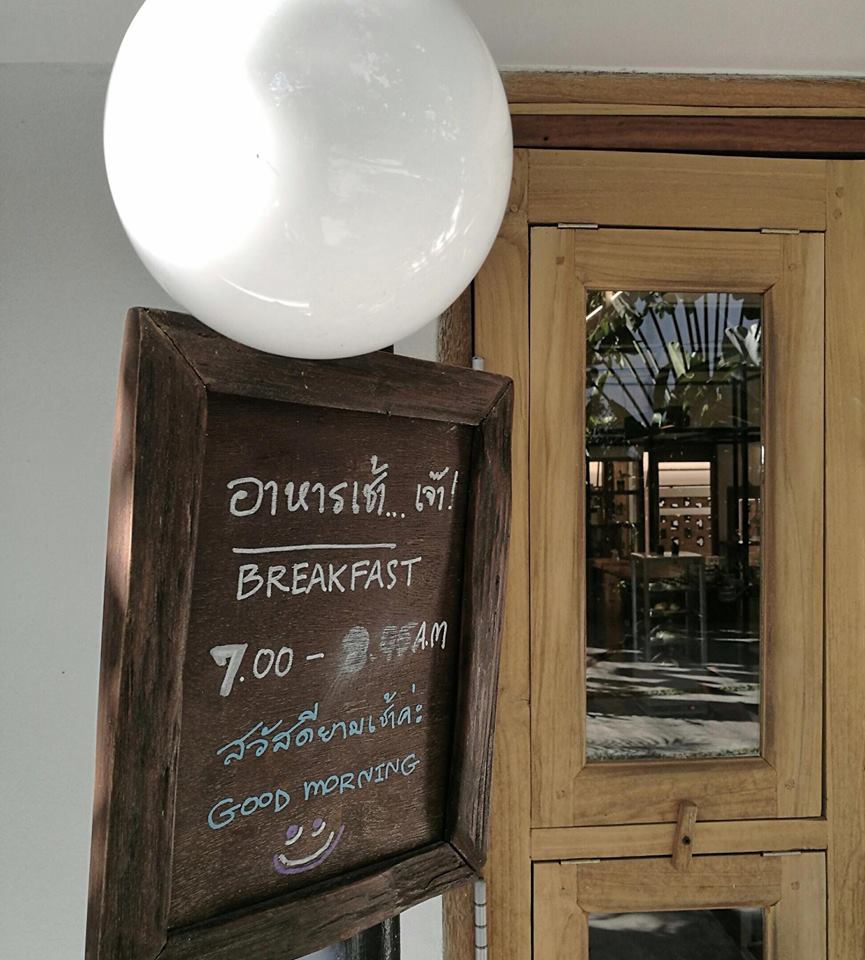 อาหารเช้า... เจ้า!
BREAKFAST
7.00 - A.M
สวัสดียามเช้าค่ะ
GOOD MORNING